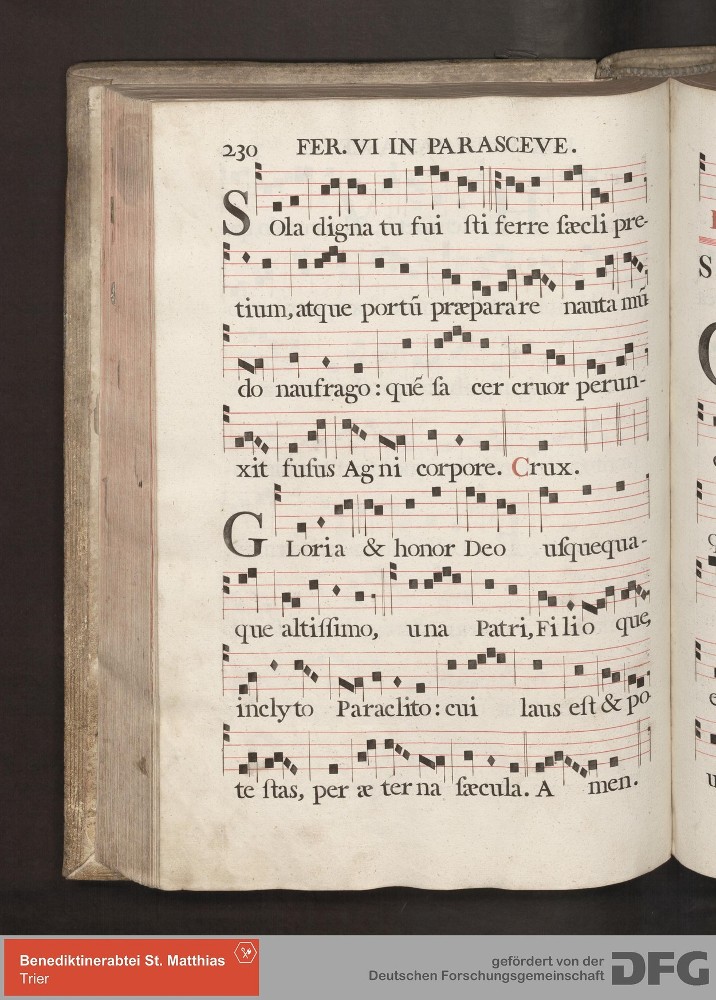 230 FER. VI IN PARASCEVE.
SOla digna tu fui ſti ferre ſæcli pre-
tium, atque portũ præparare nauta mũ-
do naufrago: quẽ ſa cer cruor perun-
xit fuſus Ag ni corpore. Crux.
GLoria & honor Deo uſquequa-
que altiſſimo, una Patri, Fi li o que,
inclyto Paraclito: cui laus eſt & po-
te ſtas, per æ ter na ſæcula. A men.
Benediktinerabtei St. Matthias
Trier
gefördert von der
Deutschen Forschungsgemeinschaft DFG